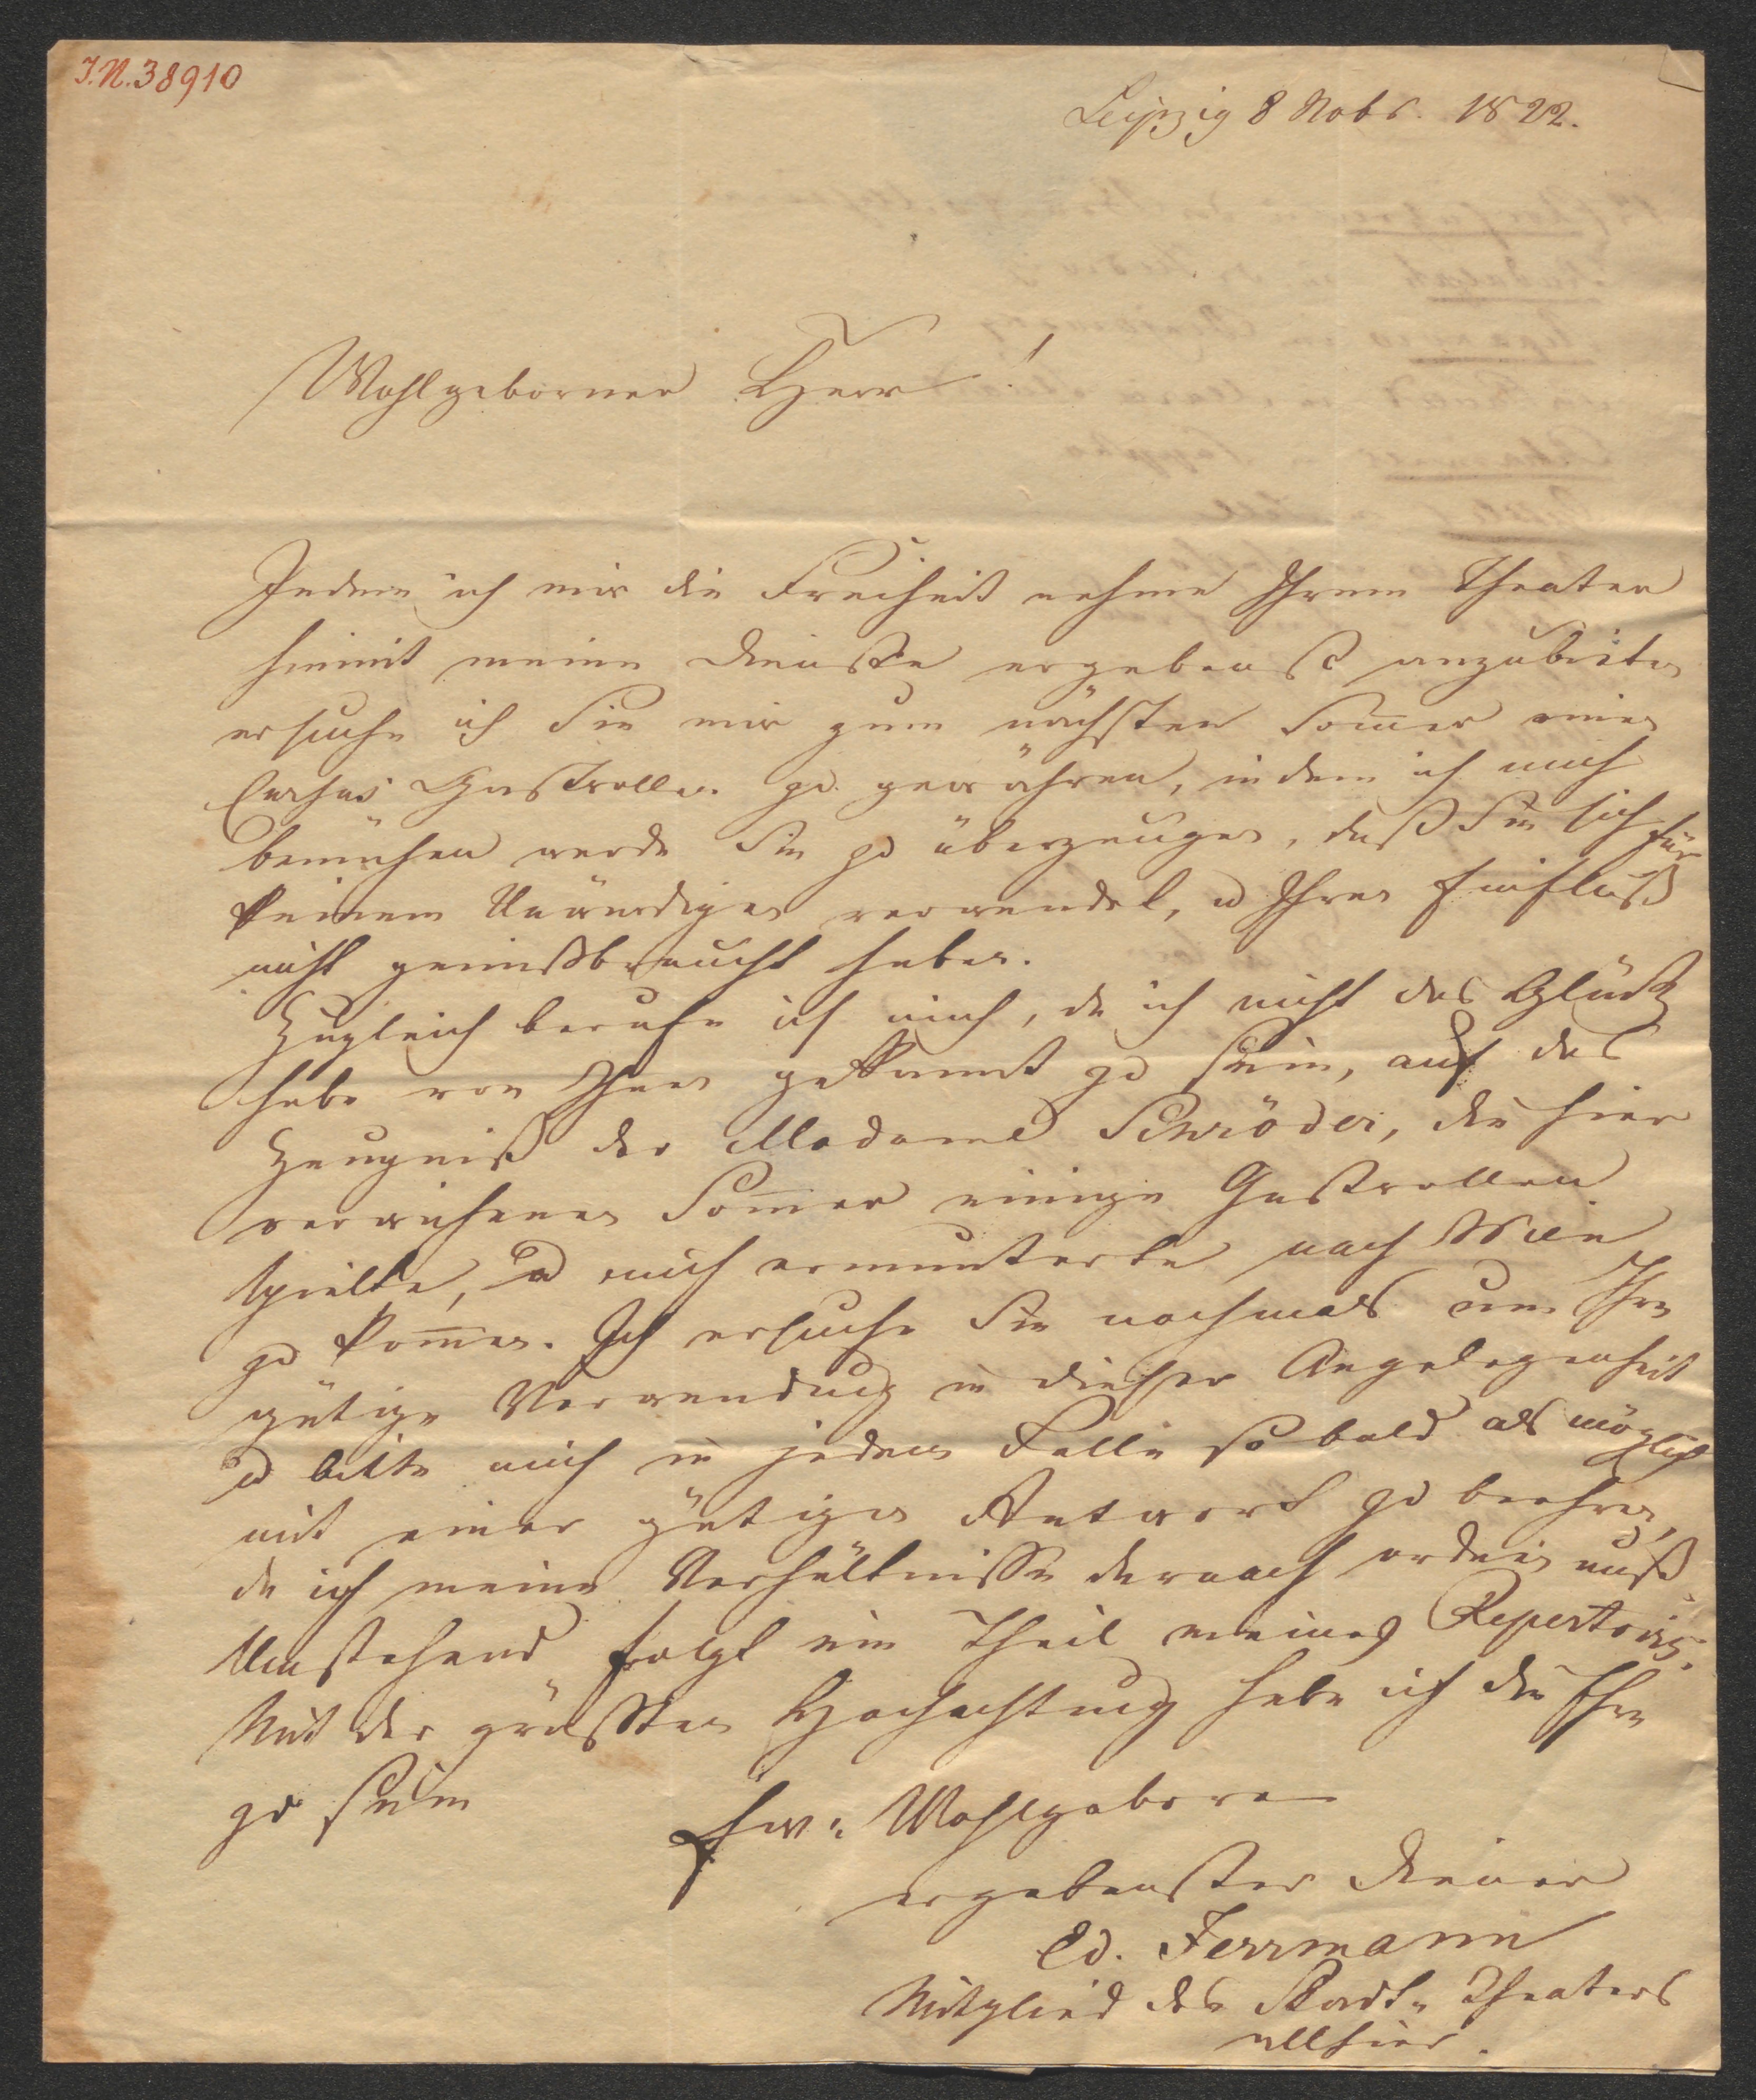 I.N. 38910
Leipzig 8 Nobr. 1822.
Wohlgeborner Herr!
Indem ich mir die Freiheit nehme Ihrem Theater
hiemit meine Dienste ergebenst anzubieten
ersuche ich Sie mir zum nächsten Som̄er einen
Cyclus Gastrollen zu gewähren, indem ich mich
bemühen werde Sie zu überzeugen, daß Sie sich für
keinem Unwürdigen verwendet, u Ihren Einfluß
nicht gemißbraucht haben.
Zugleich berufe ich mich, da ich nicht das Glück
habe von Ihnen gekannt zu sein, auf das
Zeugniß der Madame Schröder, die hier
verwichenen Som̄er einige Gastrollen
spielte, u mich ermunterte nach Wien
zu kom̄en. Ich ersuche Sie nochmals um Ihre
gütige Verwendung in dieser Angelegenheit
u bitte mich in jedem Falle so bald als möglich
mit einer gütigen Antwort zu beehren,
da ich meine Verhältnisse darnach ordnen muß.
Umstehend folgt ein Theil meines Repertoirs.
Mit der größten Hochachtung habe ich die Ehre
zu sein
Ew. Wohlgeboren
ergebenster Diener
Ed. Jerrmann
Mitglied des Stadt-Theaters
allhier.